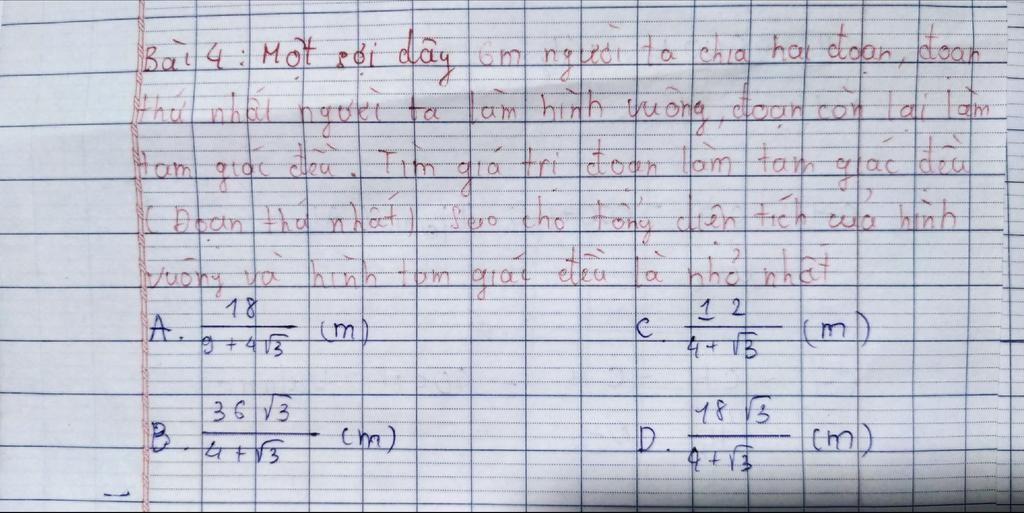 Bài 4: Một sợi dây 6m người ta chia hai đoạn, đoạn
thứ nhất người ta làm hình vuông, đoạn còn lại làm
tam giác đều. Tìm giá trị đoạn làm tam giác đều
(Đoạn thứ nhất) sao cho tổng diện tích của hình
vuông và hình tam giác đều là nhỏ nhất
A. 18 / (9 + 4√3) (m) C. 12 / (4 + √3) (m)
B. 36√3 / (4 + √3) (m) D. 18√3 / (4 + √3) (m)